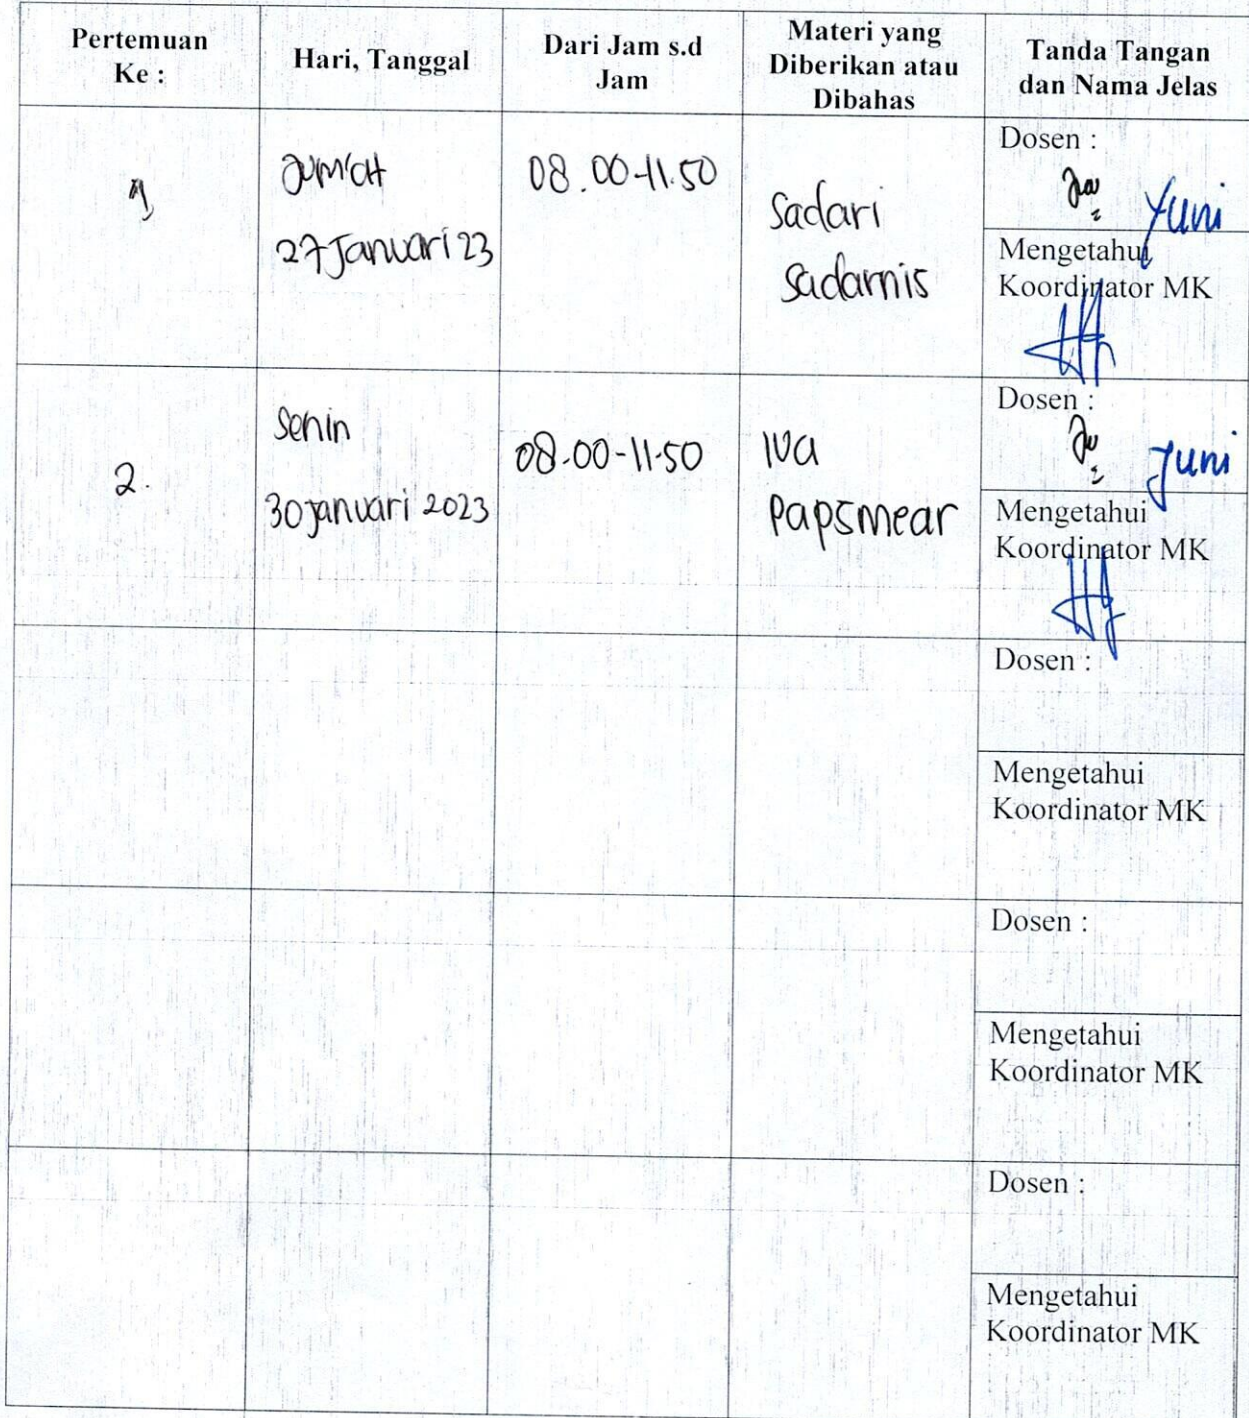 Pertemuan
Ke :
Hari, Tanggal
Dari Jam s.d
Jam
Materi yang
Diberikan atau
Dibahas
Tanda Tangan
dan Nama Jelas
1
Jum'at
27 Januari 23
08.00-11.50
Sadari
Sadarnis
Dosen :
Yuni
Mengetahui
Koordinator MK
2.
Senin
30 Januari 2023
08.00-11.50
IVa
Papsmear
Dosen :
Yuni
Mengetahui
Koordinator MK
Dosen :
Mengetahui
Koordinator MK
Dosen :
Mengetahui
Koordinator MK
Dosen :
Mengetahui
Koordinator MK